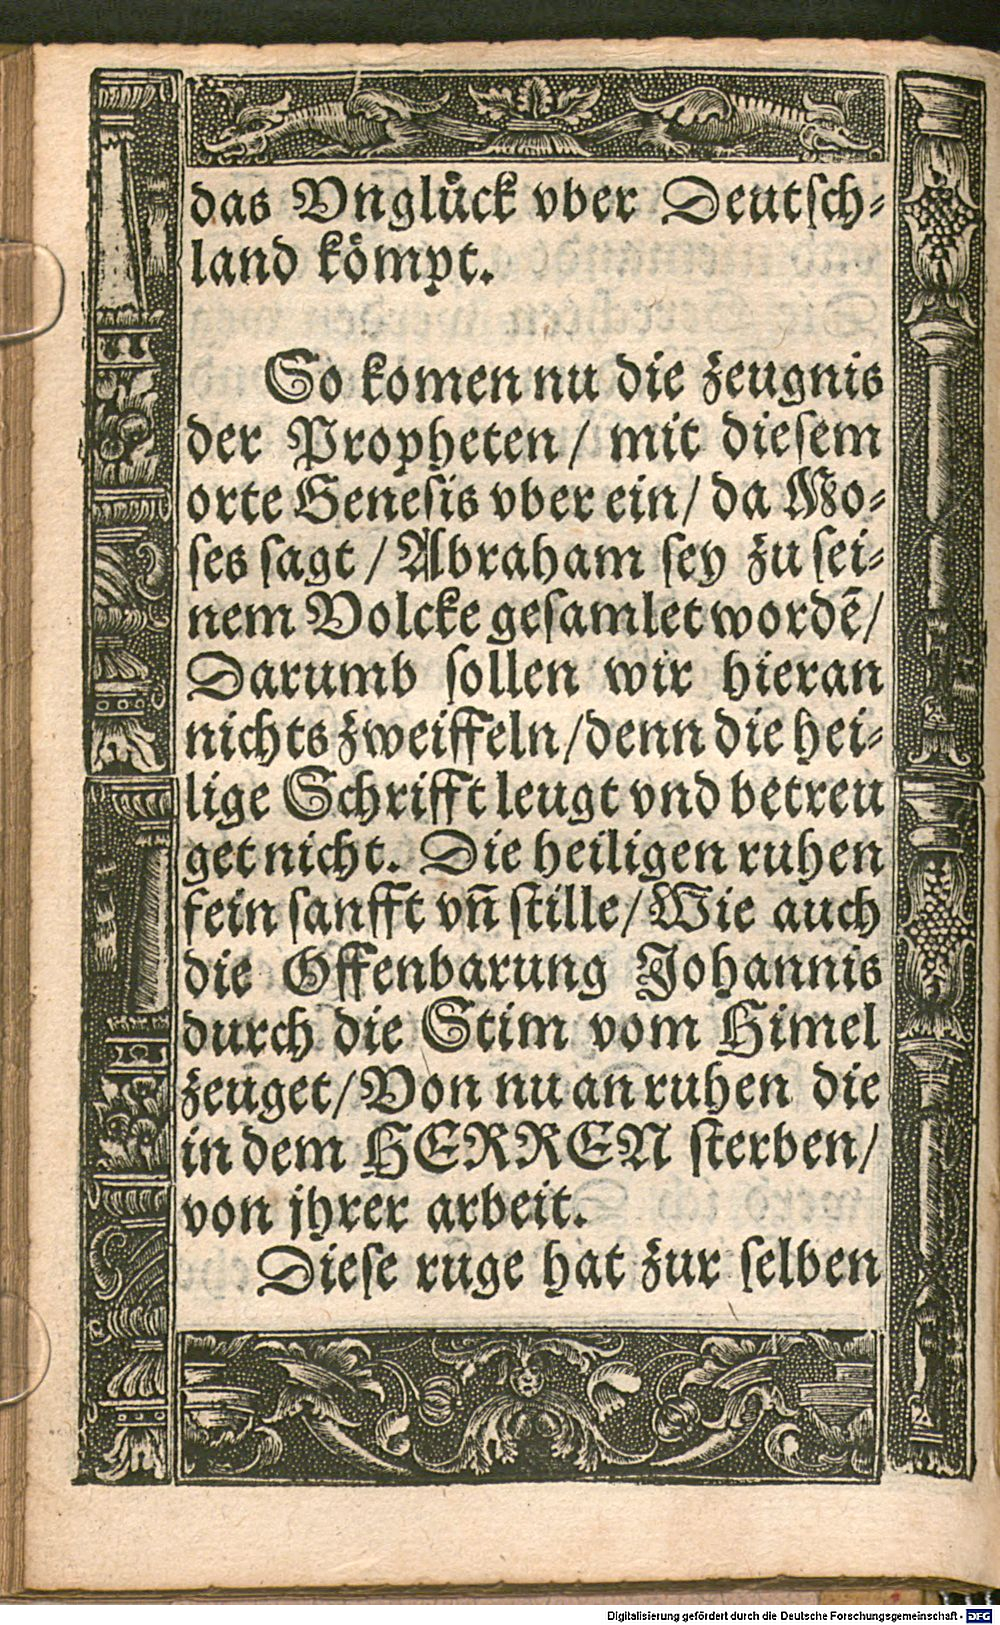 das Vnglück vber Deutsch⸗
land kömpt.
So komen nu die zeugnis
der Propheten / mit diesem
orte Genesis vber ein / da Mo⸗
ses sagt / Abraham sey zu sei⸗
nem Volcke gesamlet wordē /
Darumb sollen wir hieran
nichts zweiffeln / denn die hei⸗
lige Schrifft leugt vnd betreu
get nicht. Die heiligen ruhen
fein sanfft vñ stille / Wie auch
die Offenbarung Johannis
durch die Stim vom Himel
zeuget / Von nu an ruhen die
in dem HERREN sterben /
von jhrer arbeit.
Diese ruge hat zur selben
Digitalisierung gefördert durch die Deutsche Forschungsgemeinschaft - DFG